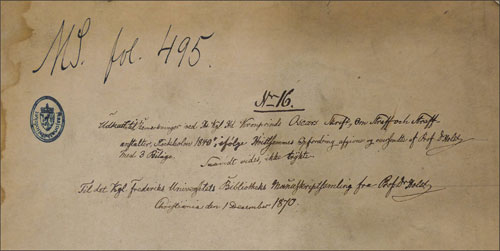 MS. fol. 495.
No 16.
Udkast til Bemærkninger ved Kronprinds Oscars Skrift, Om Straff och Straff
anstalter, Stockholm 1840, ifølge Höistsammes Befordring afgivne og forfattede af Prof Dr Holst
med 3 Bilage.
Saavidt vides, ikke trykte.
Til det Kgl Frederiks Universitets Bibliotheks Manuskriptsamling fra Prof. Dr Holst
Christiania den 1 December 1870